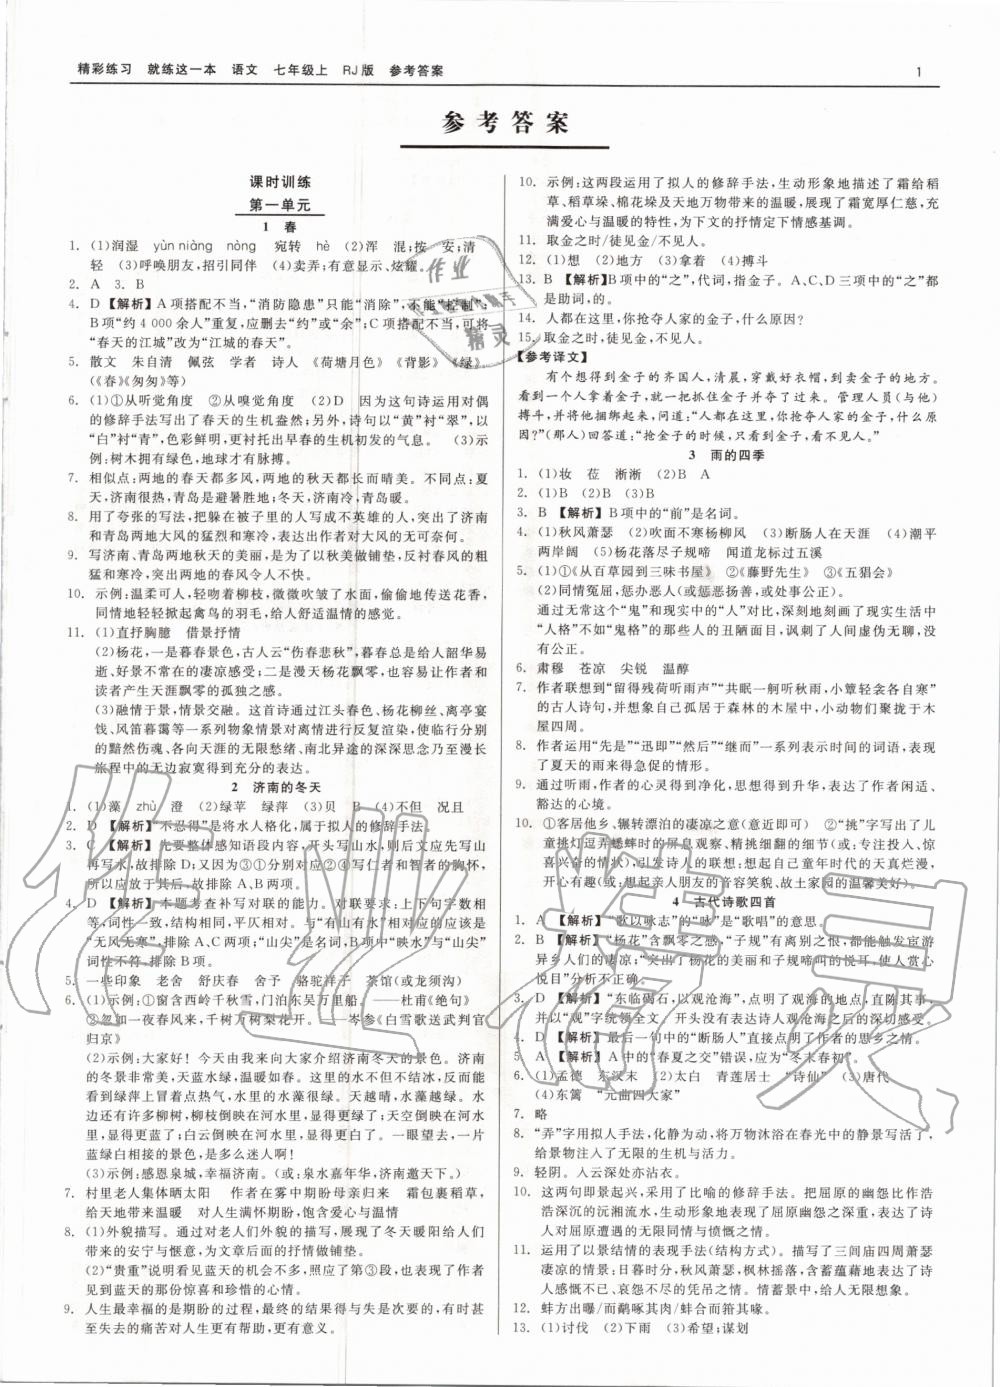 精彩练习 就练这一本 语文 七年级上 RJ版 参考答案
1
参考答案
课时训练
第一单元
1 春
1. (1)润湿 yùn niàng nòng 宛转 hè (2)浑 混;按 安;清
轻 (3)呼唤朋友,招引同伴 (4)卖弄;有意显示、炫耀。
2. A 3. B
4. D 【解析】A项搭配不当,“消防隐患”只能“消除”,不能“控制”;
B项“约4 000余人”重复,应删去“约”或“余”;C项搭配不当,可将
“春天的江城”改为“江城的春天”。
5. 散文 朱自清 佩弦 学者 诗人 《荷塘月色》《背影》《绿》
(《春》《匆匆》等)
6. (1)①从听觉角度 ②从嗅觉角度 (2)D 因为这句诗运用对偶
的修辞手法写出了春天的生机盎然;另外,诗句以“黄”衬“翠”,以
“白”衬“青”,色彩鲜明,更衬托出早春的生机初发的气息。 (3)示
例:树木拥有绿色,地球才有脉搏。
7. 相似点:两地的春天都多风,两地的秋天都长而晴美。不同点:夏
天,济南很热,青岛是避暑胜地;冬天,济南冷,青岛暖。
8. 用了夸张的写法,把躲在被子里的人写成不英雄的人,突出了济南
和青岛两地大风的猛烈和寒冷,表达出作者对大风的无可奈何。
9. 写济南、青岛两地秋天的美丽,是为了以秋美做铺垫,反衬春风的粗
猛和寒冷,突出两地的春风令人不快。
10. 示例:温柔可人,轻吻着柳枝,微微吹皱了水面,偷偷地传送花香,
同情地轻轻掀起禽鸟的羽毛,给人舒适温情的感觉。
11. (1)直抒胸臆 借景抒情
(2)杨花,一是暮春景色,古人云“伤春悲秋”,暮春总是给人韶华易
逝、好景不长的凄凉感受;二是漫天杨花飘零的景象,易使作者和
读者产生天涯飘零的孤独之感。
(3)融情于景,情景交融。这首诗通过江头春色、杨花柳丝、离亭宴
饯、风笛暮霭等一系列物象情景对离情进行反复渲染,使临行分别
的黯然伤魂、各向天涯的无限愁绪、南北异途的深深思念乃至漫长
旅程中的无边寂寞得到充分的表达。
2 济南的冬天
1. (1)藻 zhù 澄 (2)绿苹 绿萍 (3)贝 B (4)不但 况且
2. D 【解析】“不忍得”是将水人格化,属于拟人的修辞手法。
3. C 【解析】先要整体感知语段内容,下句先写山后写水,则后文应先写山
再写水,故排除D;又因为③①分别对应②④写仁者和智者的胸怀,
所以②应在③前,故排除A、B两项。
4. D 【解析】本题考查补写对联的能力。对联要求:上下句字数相
等,词性一致,结构相同,平仄相对。与“有山有水”相对应的应该是
“无风无寒”,排除A、C两项;“山尖”是名词,B项中“映水”与“山尖”
词性不符,排除B项。
5. 一些印象 老舍 舒庆春 舍予 骆驼祥子 茶馆(或龙须沟)
6. (1)示例:①窗含西岭千秋雪,门泊东吴万里船。——杜甫《绝句》
②忽如一夜春风来,千树万树梨花开。——岑参《白雪歌送武判官
归京》
(2)示例:大家好! 今天由我来向大家介绍济南冬天的景色。济南
的冬景非常美,天蓝水绿,温暖如春。冬天的水不但不结冰,反而能
看到绿萍上冒着点热气,水里的水藻很绿。天越晴,水越清澈。水
边还有许多柳树,柳枝倒映在水里,显得更绿了;天空倒映在水里,
显得更蓝了;白云倒映在水里,显得更白了。一眼望去,一片
蓝绿白相接的景色,是多么迷人啊!
(3)示例:感恩泉城,幸福济南。(或:泉水嘉年华,济南邀天下。)
7. 村里老人集体晒太阳 作者在雾中期盼母亲归来 霜包裹稻草,
给大地带来温暖 对人生满怀期盼,饱含爱心与温情
8. (1)外貌描写。通过对老人们外貌的描写,展现了冬天阳光给人们
带来的安宁与惬意,为文章的抒情做铺垫。
(2)“贵重”说明看见蓝天的机会不多,照应了第③段,也表现了作者
见到蓝天的那份惊喜的心情。
9. 人生最幸福的是期盼的过程,最终的结果得与失是次要的,有时甚
至失去的痛苦对人生更有帮助,更有意义。
10. 示例:这两段运用了拟人的修辞手法,生动形象地描述了霜给稻
草、稻草垛、棉花垛及天地万物带来的温暖,展现了霜宽厚仁慈,
充满爱心与温暖的特性,为下文的抒情定下情感基调。
11. 取金之时/徒见金/不见人。
12. (1)想 (2)地方 (3)拿着 (4)搏斗
13. B 【解析】B项中的“之”,代词,指金子。A、C、D三项中的“之”都
是助词,的。
14. 人都在这里,你抢夺人家的金子,什么原因?
15. 取金之时,徒见金,不见人。
【参考译文】
有个想得到金子的齐国人,清晨,穿戴好衣帽,到卖金子的地方。
看到一个人拿着金子,就一把抓住金子并夺了过来。管理人员(与他)
搏斗,并将他捆绑起来,问道:“人都在这里,你抢夺人家的金子,什么原
因?”(那人)回答道:“抢金子的时候,只看到金子,没看到人。”
3 雨的四季
1. (1)妆 莅 淅淅 (2)B A
2. (1)B (2)B (3)B
3. B 【解析】B项中的“前”是名词。
4. (1)秋风萧瑟 (2)吹面不寒杨柳风 (3)断肠人在天涯 (4)潮平
两岸阔 (5)杨花落尽子规啼 闻道龙标过五溪
5. (1)①《从百草园到三味书屋》 ②《藤野先生》 ③《五猖会》
(2)同情冤屈,惩办恶人(或惩恶扬善,或处事公正)。
通过无常这个“鬼”和现实中的“人”对比,深刻地刻画了现实生活中
“人格”不如“鬼格”的那些人的丑陋面目,讽刺了人间虚伪无聊,没
有公正。
6. 肃穆 苍凉 尖锐 温醇
7. 作者联想到“留得残荷听雨声”“共眠一舸听秋雨,小簟轻衾各自寒”
的古人诗句,并想象自己孤居于森林的木屋中,小动物们聚拢于木
屋四周。
8. 作者运用“先是”“迅即”“然后”“继而”一系列表示时间的词语,表现
了夏天的雨来得急促的情形。
9. 通过听雨,作者的心灵得到净化,思想得到升华,表达了作者旷达、
豁达的心境。
10. ①客居他乡、辗转漂泊的凄凉之意(意近即可) ②“挑”字写出了儿
童挑灯逗弄蟋蟀时的屏息观察、精挑细拨的细节(或:专注投入、惊
喜兴奋的情状),引发诗人的联想,想起自己童年时代的天真烂漫,
开心快乐(或:想起亲人朋友的音容笑貌,故土家园的温馨美好)。
4 古代诗歌四首
1. A 【解析】“歌以咏志”的“咏”是“歌唱”的意思。
2. B 【解析】“杨花”含飘零之感,“子规”有离别之恨,都能触发宦游
异乡人们的凄凉;“突出了此时此地杨花的美丽和子规啼叫的悦耳,使人赏心
悦目”分析不正确。
3. D 【解析】“东临碣石,以观沧海”,点明了观海的地点,直陈其事,
并以“观”字统领全文。开头没有表现诗人观沧海的深切感受。
4. D 【解析】最后一句中的“断肠人”直接点明了作者的思乡之情。
5. A 【解析】A中的“春夏之交”错误,应为“冬末春初”。
6. (1)孟德 东汉末 (2)太白 青莲居士 “诗仙” (3)唐代
(4)东篱 “元曲四大家”
7. 略
8. “弄”字用拟人手法,化静为动,将万物沐浴在春光中的静景写活了,
给景物注入了无限的生机与活力。
9. 轻阴。入云深处亦沾衣。
10. 这两句即景起兴,采用了比喻的修辞手法。把屈原的幽怨比作浩
浩深沉的沅湘流水,生动形象地表现了屈原的幽怨之深,表达了诗
人对屈原遭遇的无限同情与愤慨之情。
11. 运用了以景结情的表现手法(结构方式)。描写了三闾庙四周萧瑟
凄凉的情景:日暮时分,秋风萧瑟,枫林摇落,含蓄蕴藉地表达了诗
人感慨不已、哀怨不尽的凭吊之情。情蓄景中,意余象外。
12. 蚌方出曝/而鹬啄其肉/蚌合而箝其喙。
13. (1)讨伐 (2)下雨 (3)希望;谋划